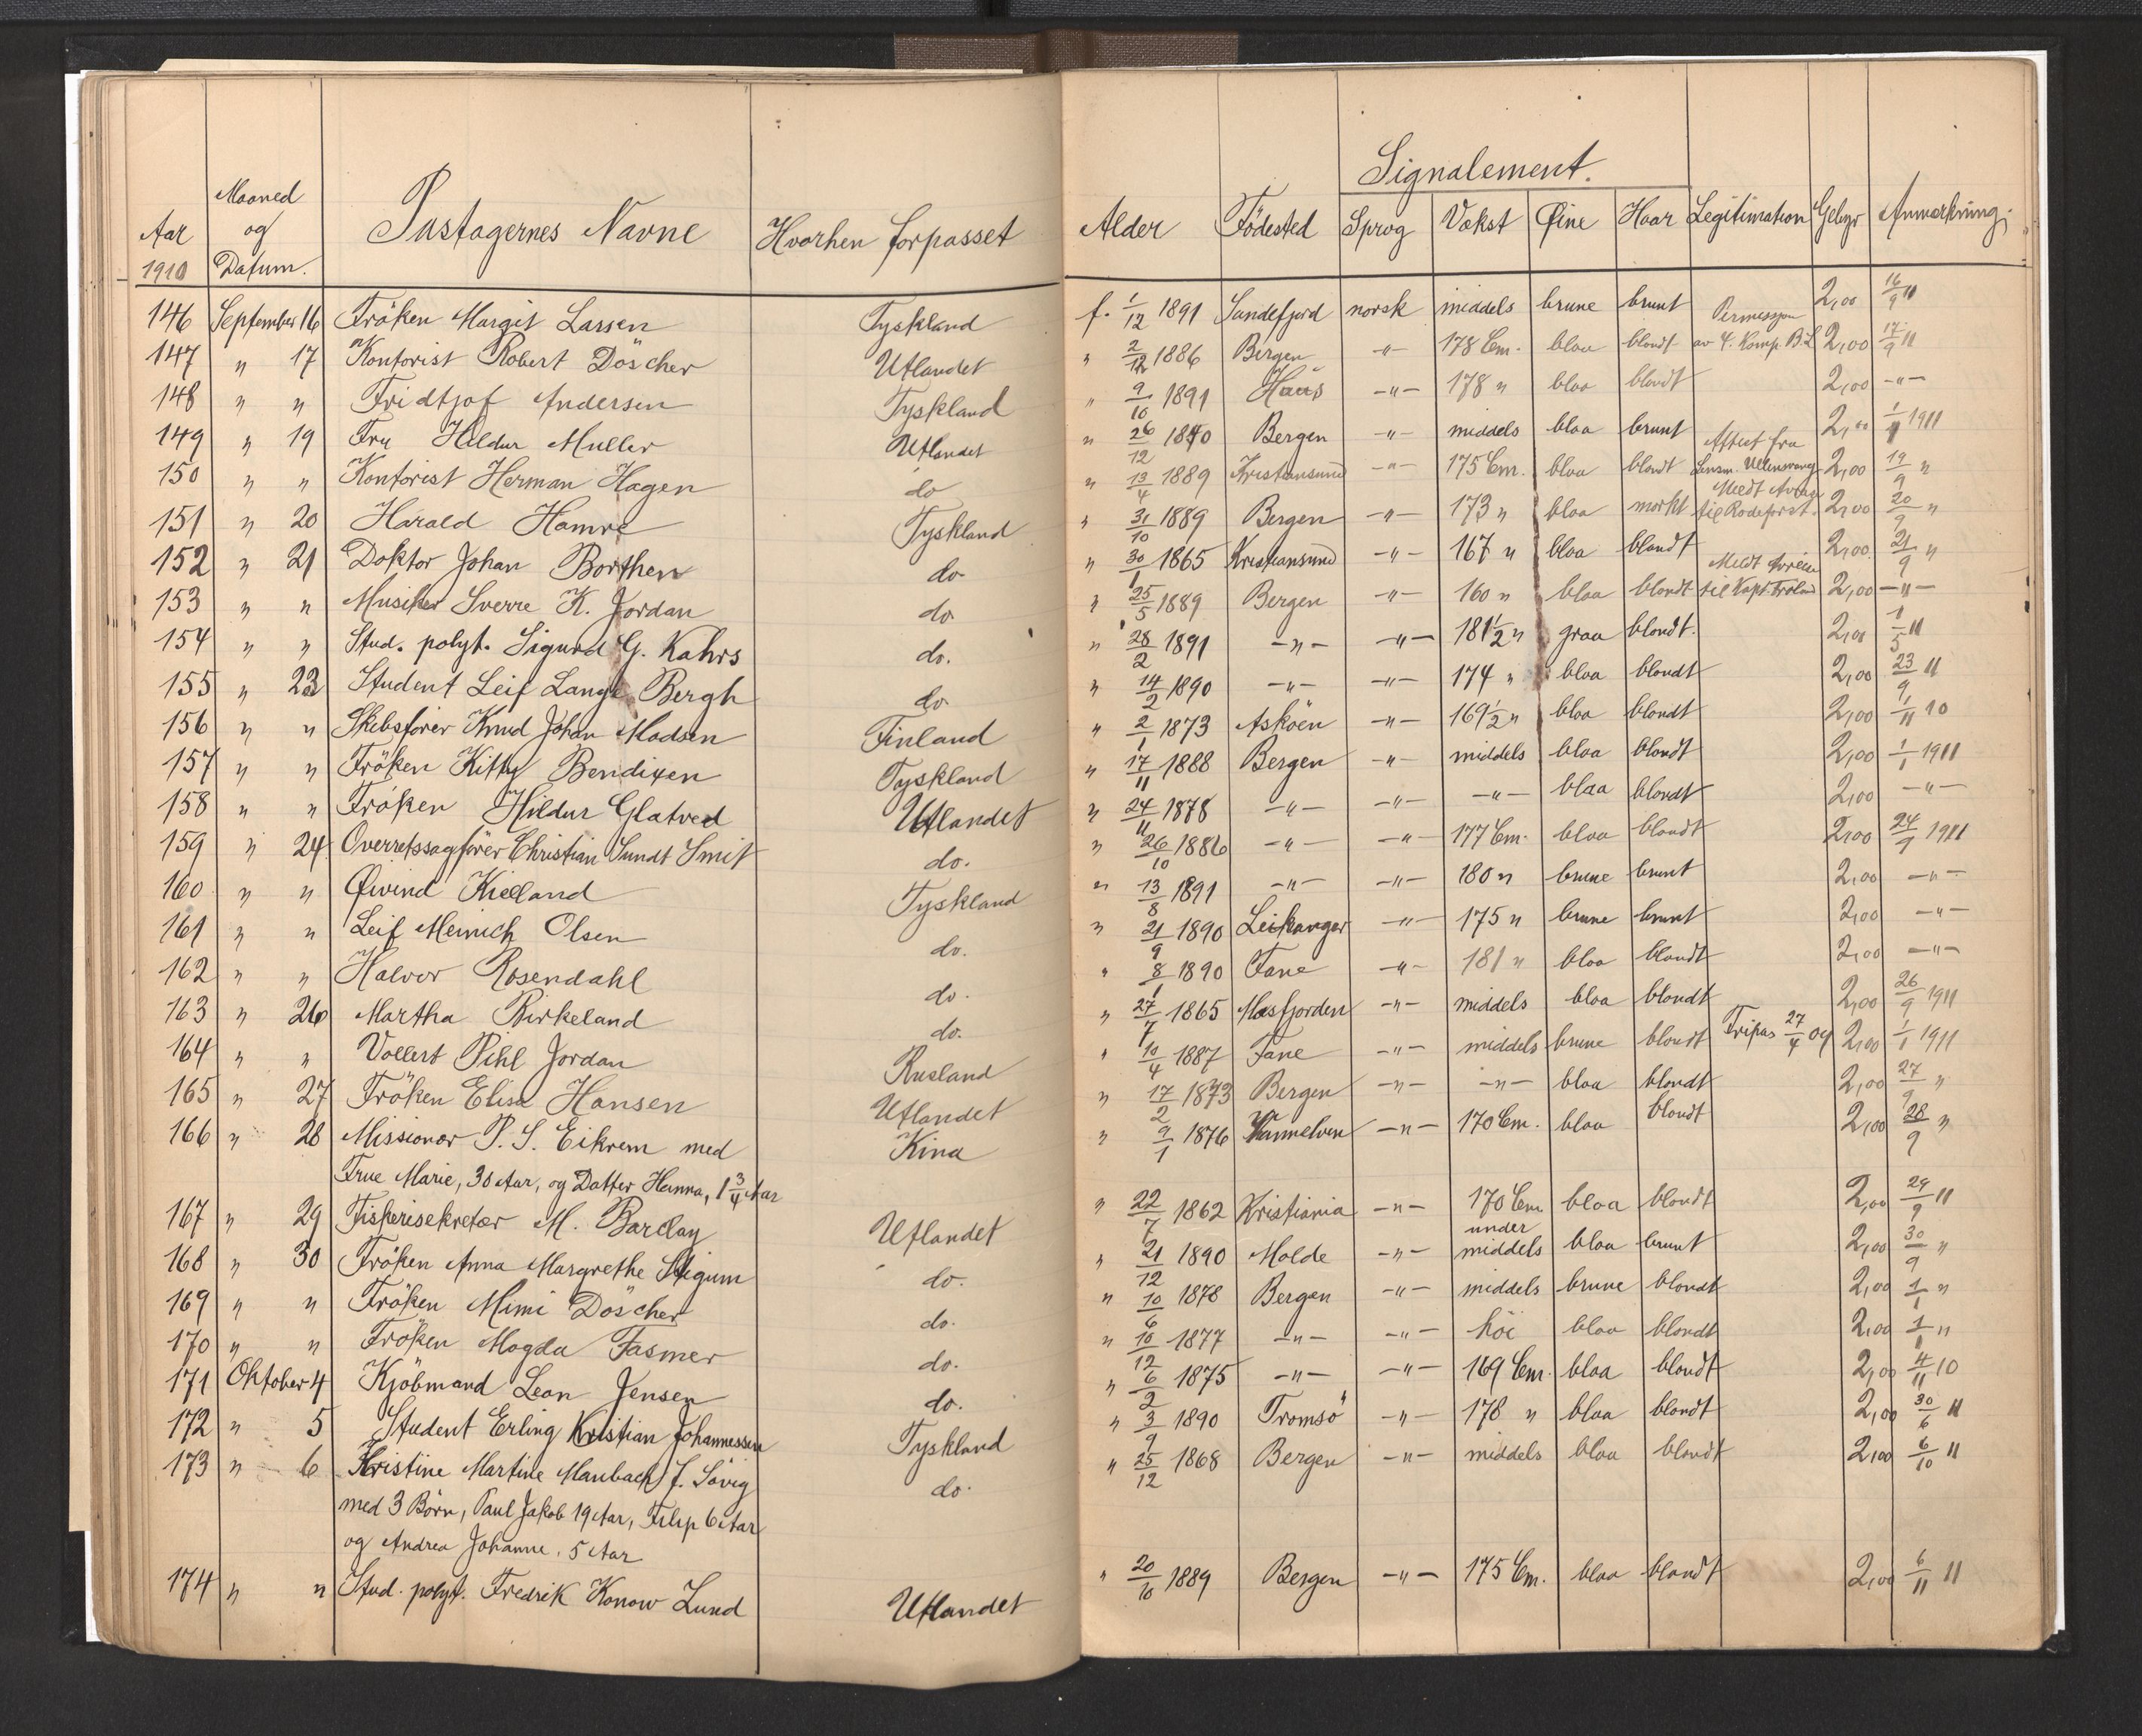 Signalement.
Aar 1910 Maaned og Datum. Pastagernes Navne Hvorhen forpasset Alder Födested Sprog Vækst Øine Haar Legitimation Gebyr Anmærkning.
146 September 16 Fröken Margit Larsen Tyskland f. 1/12 1891 Sandefjord norsk middels brune brunt 2,00 16/9 11
147 " 17 Kontorist Robert Döscher Utlandet " 2/12 1886 Bergen -"- 178 Cm. blaa blondt Permission av 4. Komp. B.L 2,00 17/9 11
148 " " Fridtjof Andersen Tyskland " 9/10 1891 Haus -"- 178 " blaa blondt 2,00 -"-
149 " 19 Fru Hildur Muller Utlandet " 26/12 1840 Bergen -"- middels blaa brunt 2,00 1/1 1911
150 " " Kontorist Herman Hagen do " 13/4 1889 Kristiansund -"- 175 Cm. blaa blondt Attest fra Lensm. Ullensvang 2,00 19/9 "
151 " 20 Harald Hamre Tyskland " 31/10 1889 Bergen -"- 173 " blaa mørkt Meldt til Rodeforst. 2,00 20/9 "
152 " 21 Doktor Johan Borthen do " 30/1 1865 Kristiansund -"- 167 " blaa blondt 2,00 21/9 "
153 " " Musiker Sverre K. Jordan do " 25/5 1889 Bergen -"- 160 " blaa blondt Meldt til Kapt. 2,00 -"-
154 " " Stud. polyt. Sigurd G. Kahrs do. " 28/2 1891 -"- -"- 181 1/2 " graa blondt. 2,00 1/5 11
155 " 23 Student Leif Lange Bergh do " 14/2 1890 -"- -"- 174 " blaa blondt 2,00 23/9 11
156 " " Skibsfører Knud Johan Madsen Finland " 2/1 1873 Asköen -"- 169 1/2 " blaa blondt 2,00 1/11 10
157 " " Fröken Kitty Bendixen Tyskland " 17/11 1888 Bergen -"- middels blaa blondt 2,00 1/1 1911
158 " " Fröken Hildur Glatved Utlandet " 24/11 1878 -"- -"- -"- blaa blondt 2,00 -"-
159 " 24 Overretssagfører Christian Sundt Smit do. " 26/10 1886 -"- -"- 177 Cm. blaa blondt 2,00 24/9 1911
160 " " Øivind Kielland Tyskland " 13/8 1891 -"- -"- 180 " brune brunt 2,00 -"-
161 " " Leif Meinich Olsen do. " 21/9 1890 Leikanger -"- 175 " brune brunt 2,00 -"-
162 " " Halvor Rosendahl do. " 8/1 1890 Fane -"- 181 " blaa blondt 2,00 -"-
163 " 26 Martha Birkeland do. " 27/7 1865 Masfjorden -"- middels blaa blondt 2,00 26/9 1911
164 " " Vollert Pihl Jordan Rusland " 10/4 1887 Fane -"- middels brune blondt Fripas 27/4 09 2,00 1/1 1911
165 " 27 Fröken Elise Hansen Utlandet " 17/2 1873 Bergen -"- -"- blaa blondt 2,00 27/9 "
166 " 28 Missionær P. S. Eikrem med Kina " 9/1 1876 Vannelven -"- 170 Cm. blaa blondt 2,00 28/9 "
Frue Marie, 30 Aar, og Datter Hanna, 1 3/4 Aar
167 " 29 Fiskerisekretær M. Barclay Utlandet " 22/7 1862 Kristiania -"- 170 Cm blaa blondt 2,00 29/9 11
168 " 30 Fröken Anna Margrethe Stigum do. " 21/12 1890 Molde -"- under middels blaa brunt 2,00 30/9 "
169 " " Fröken Mimi Döscher do. " 10/6 1878 Bergen -"- middels brune blondt 2,00 1/1 "
170 " " Fröken Magda Fasmer do. " 10/12 1877 -"- -"- höi blaa blondt 2,00 1/1 "
171 Oktober 4 Kjöbmand Leon Jensen do. " 6/2 1875 -"- -"- 169 Cm. blaa blondt 2,00 4/11 10
172 " 5 Student Erling Kristian Johannessen Tyskland " 3/9 1890 Tromsö -"- 178 " blaa blondt 2,00 30/6 11
173 " 6 Kristine Martine Maubach f. Sövig do. " 25/12 1868 Bergen -"- middels blaa blondt 2,00 6/10 11
med 3 Börn, Paul Jakob 19 Aar, Filip 6 Aar
og Andrea Johanne, 5 Aar
174 " " Stud. polyt. Fredrik Konow Lund Utlandet " 20/10 1889 Bergen -"- 175 Cm. blaa blondt 2,00 6/11 11